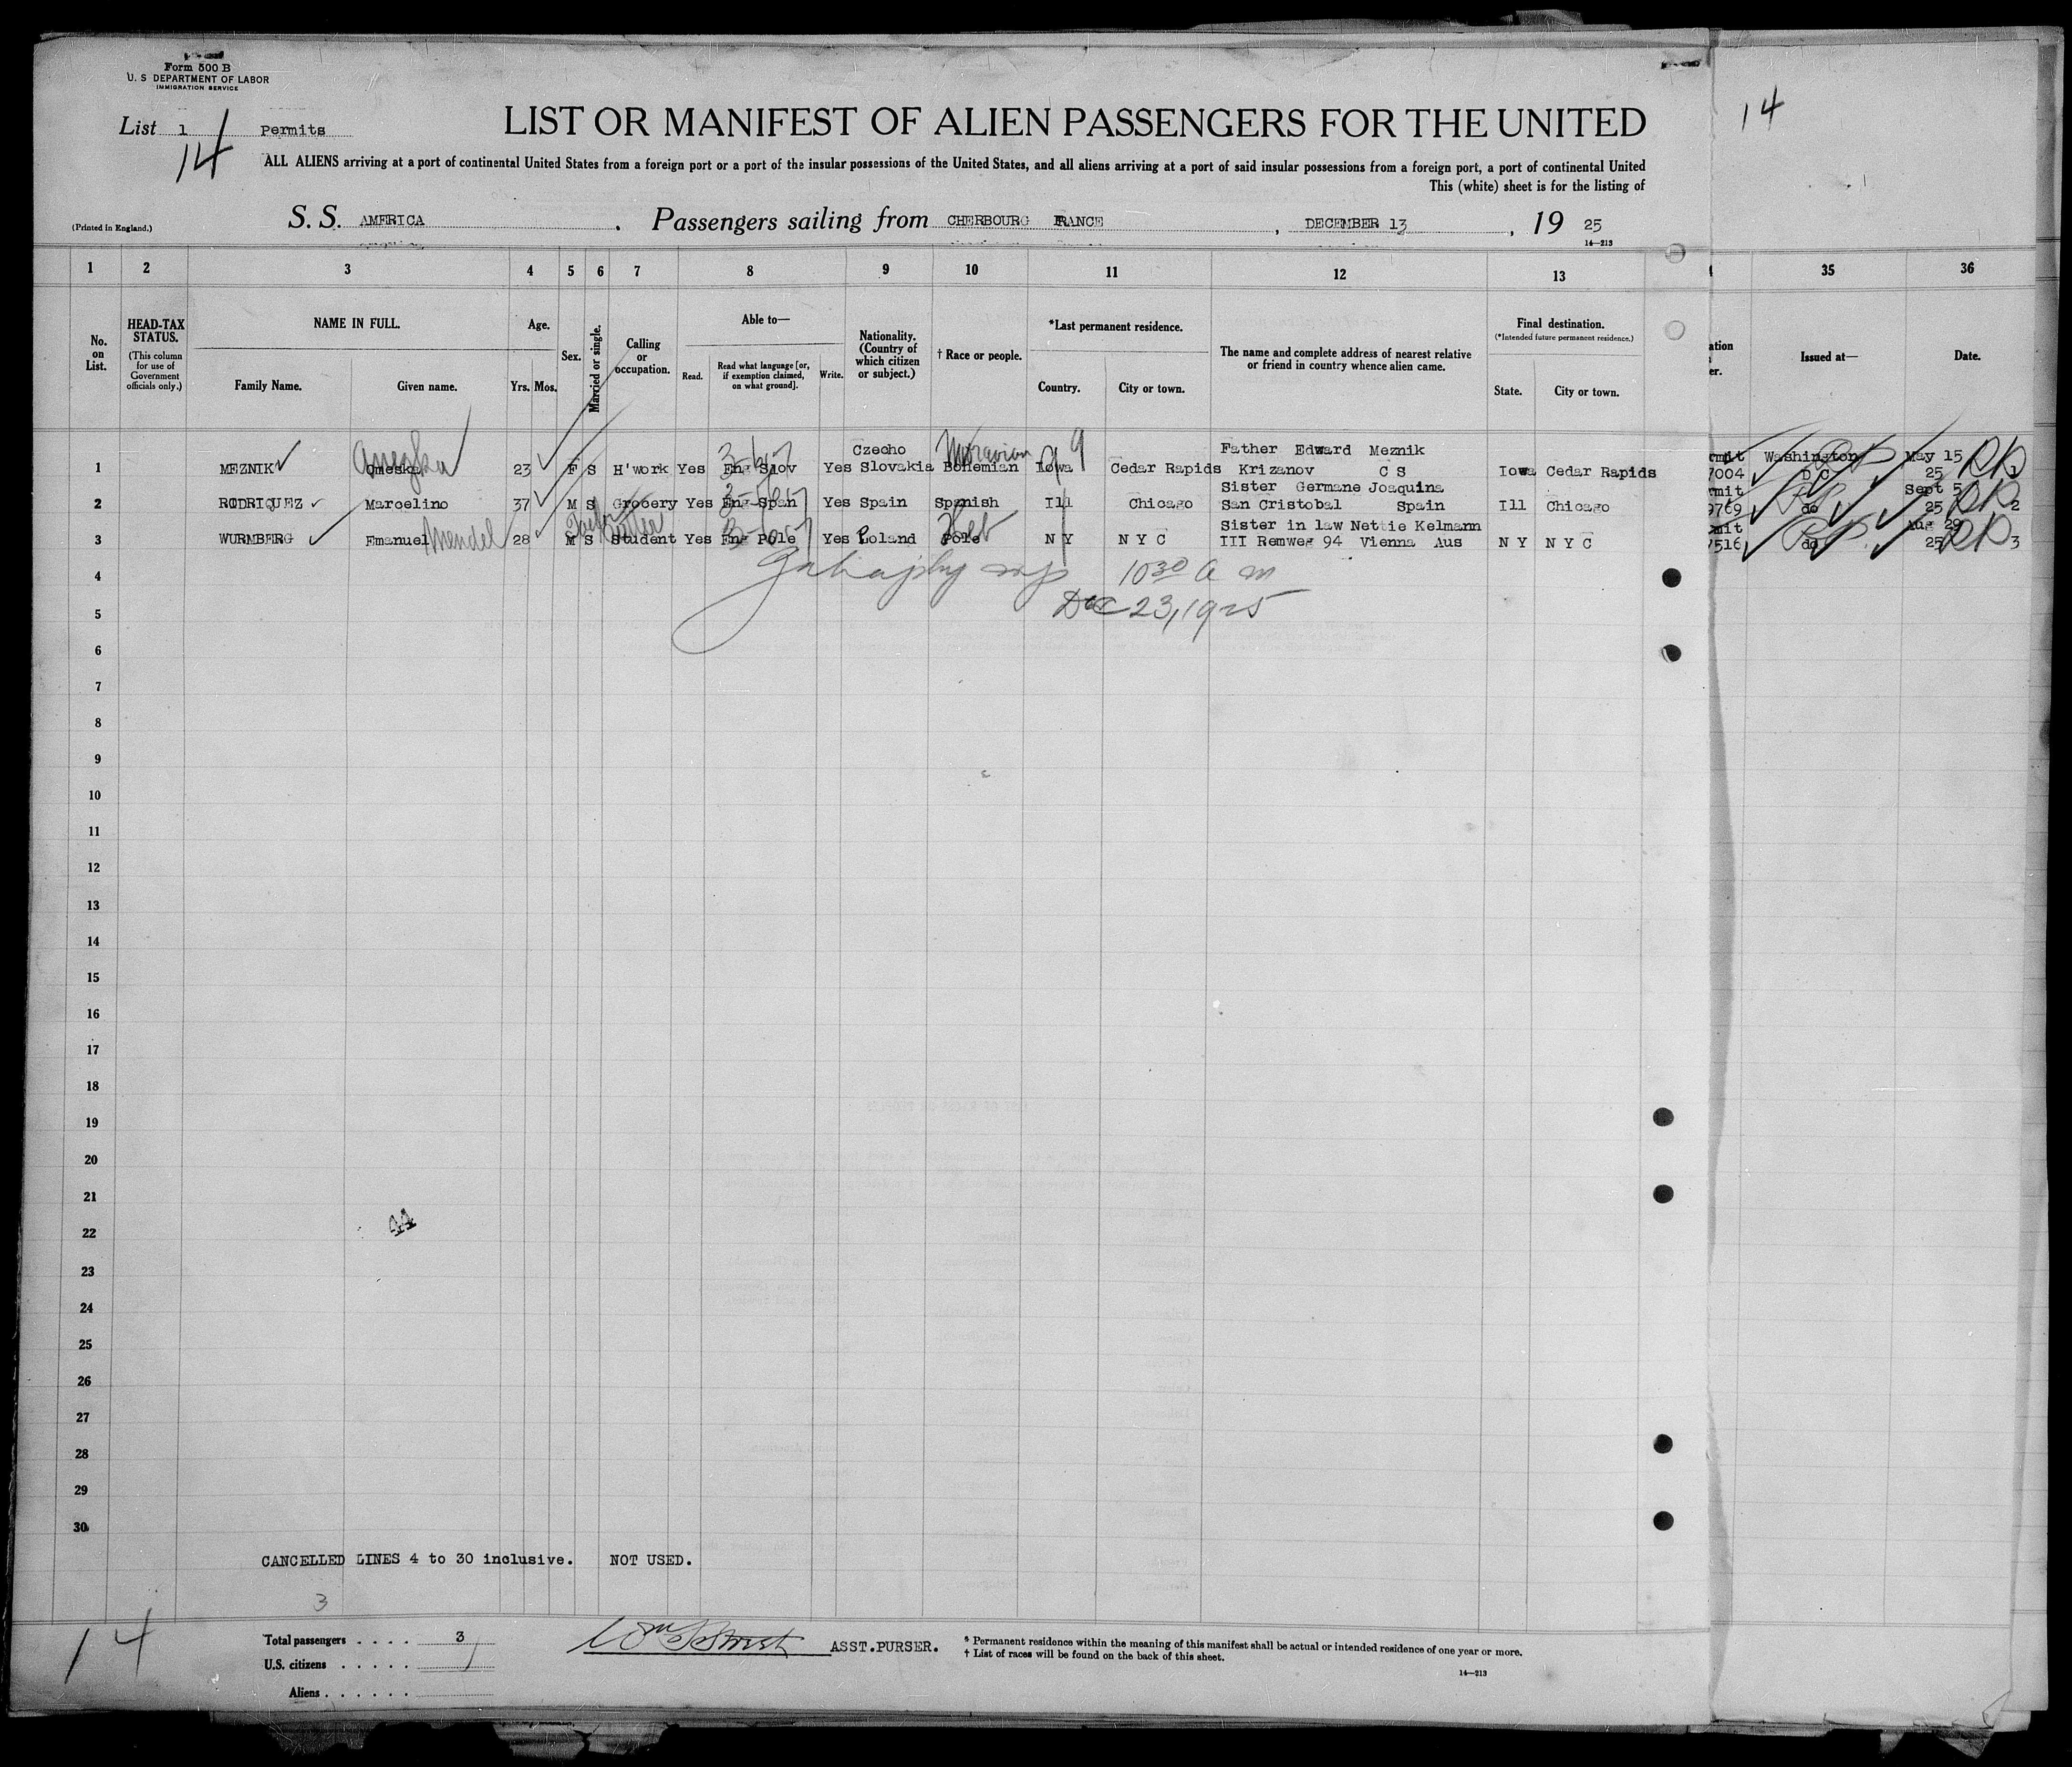 Form 500 B
U. S DEPARTMENT OF LABOR
IMMIGRATION SERVICE
List 1 Permits
14
14
LIST OR MANIFEST OF ALIEN PASSENGERS FOR THE UNITED
ALL ALIENS arriving at a port of continental United States from a foreign port or a port of the insular possessions of the United States, and all aliens arriving at a port of said insular possessions from a foreign port, a port of continental United
This (white) sheet is for the listing of
(Printed in England.)
S. S. AMERICA . Passengers sailing from CHERBOURG FRANCE , DECEMBER 13 , 19 25
14—213
1 2 3 4 5 6 7 8 9 10 11 12 13 35 36
No. on List.
HEAD-TAX STATUS.
(This column for use of Government officials only.)
NAME IN FULL.
Family Name. Given name.
Age.
Yrs. Mos.
Sex.
Married or single.
Calling or occupation.
Able to—
Read. Read what language [or, if exemption claimed, on what ground]. Write.
Nationality. (Country of which citizen or subject.)
† Race or people.
*Last permanent residence.
Country. City or town.
The name and complete address of nearest relative or friend in country whence alien came.
Final destination.
(*Intended future permanent residence.)
State. City or town.
Issued at— Date.
Anezka Czecho Moravian Father Edward Meznik rmit Washington May 15
1 MEZNIK Omeska 23 F S H'work Yes Eng Slov Yes Slovakia Bohemian Iowa Cedar Rapids Krizanov C S Iowa Cedar Rapids 7004 D C 25 1
Sister Germane Joaquina rmit Sept 5
2 RODRIQUEZ Marcelino 37 M S Grocery Yes Eng Span Yes Spain Spanish Ill Chicago San Cristobal Spain Ill Chicago 9769 do 25 2
Sister in law Nettie Kelmann mit Aug 29
3 WURMBERG Emanuel Mendel 28 M S Student Yes Eng Pole Yes Poland Pole Heb N Y N Y C III Remweg 94 Vienna Aus N Y N Y C 7516 do 25 3
4 10 30 A m
5 Dec 23, 1925
6
7
8
9
10
11
12
13
14
15
16
17
18
19
20
21
22
44
23
24
25
26
27
28
29
30
CANCELLED LINES 4 to 30 inclusive. NOT USED.
3
14
Total passengers . . . . 3
U.S. citizens . . . . .
Aliens . . . . . .
ASST.PURSER.
* Permanent residence within the meaning of this manifest shall be actual or intended residence of one year or more.
† List of races will be found on the back of this sheet.
14—213